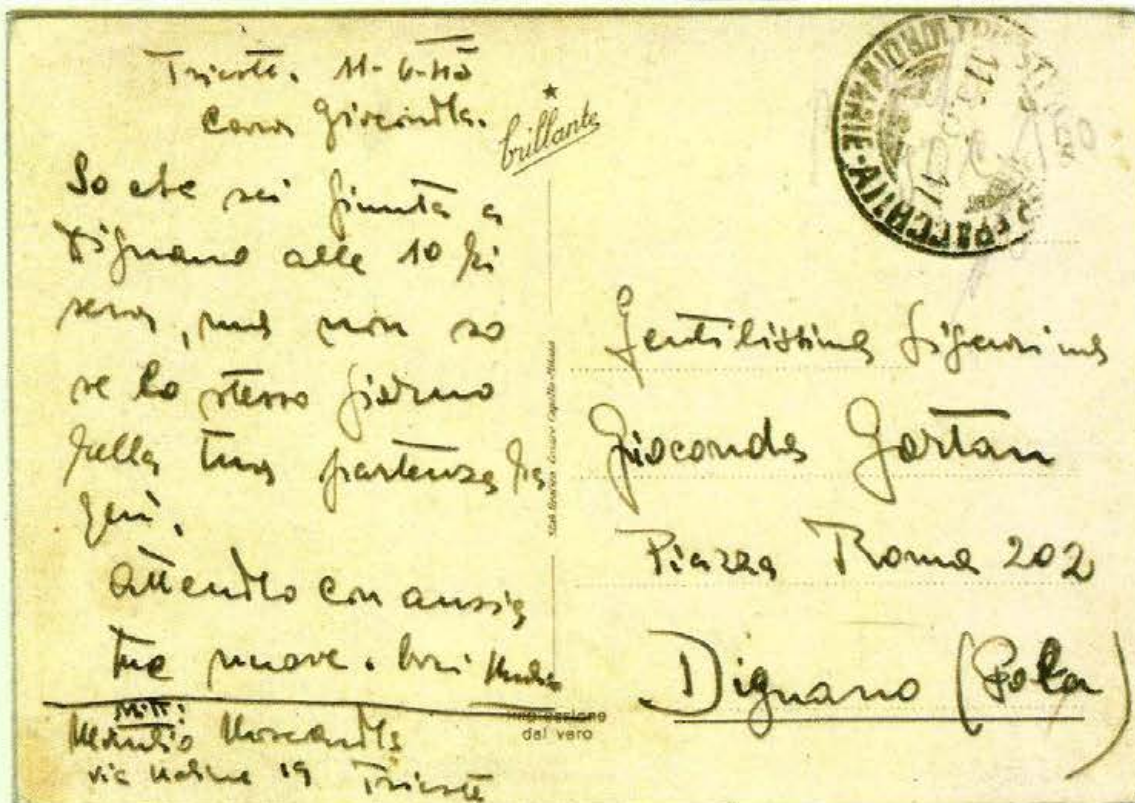 Trieste. 11-6-43
Cara Gioconda.
So che sei giunta a
Dignano alle 10 di
sera, ma non so
se lo stesso giorno
della tua partenza da
attendo con ansia
tue nuove. baci
Mitt:
via Udine 19 Trieste
brillante
Impressione
dal vero
Gentilissima Signorina
Gioconda Gortan
Piazza Roma 202
Dignano (Pola)